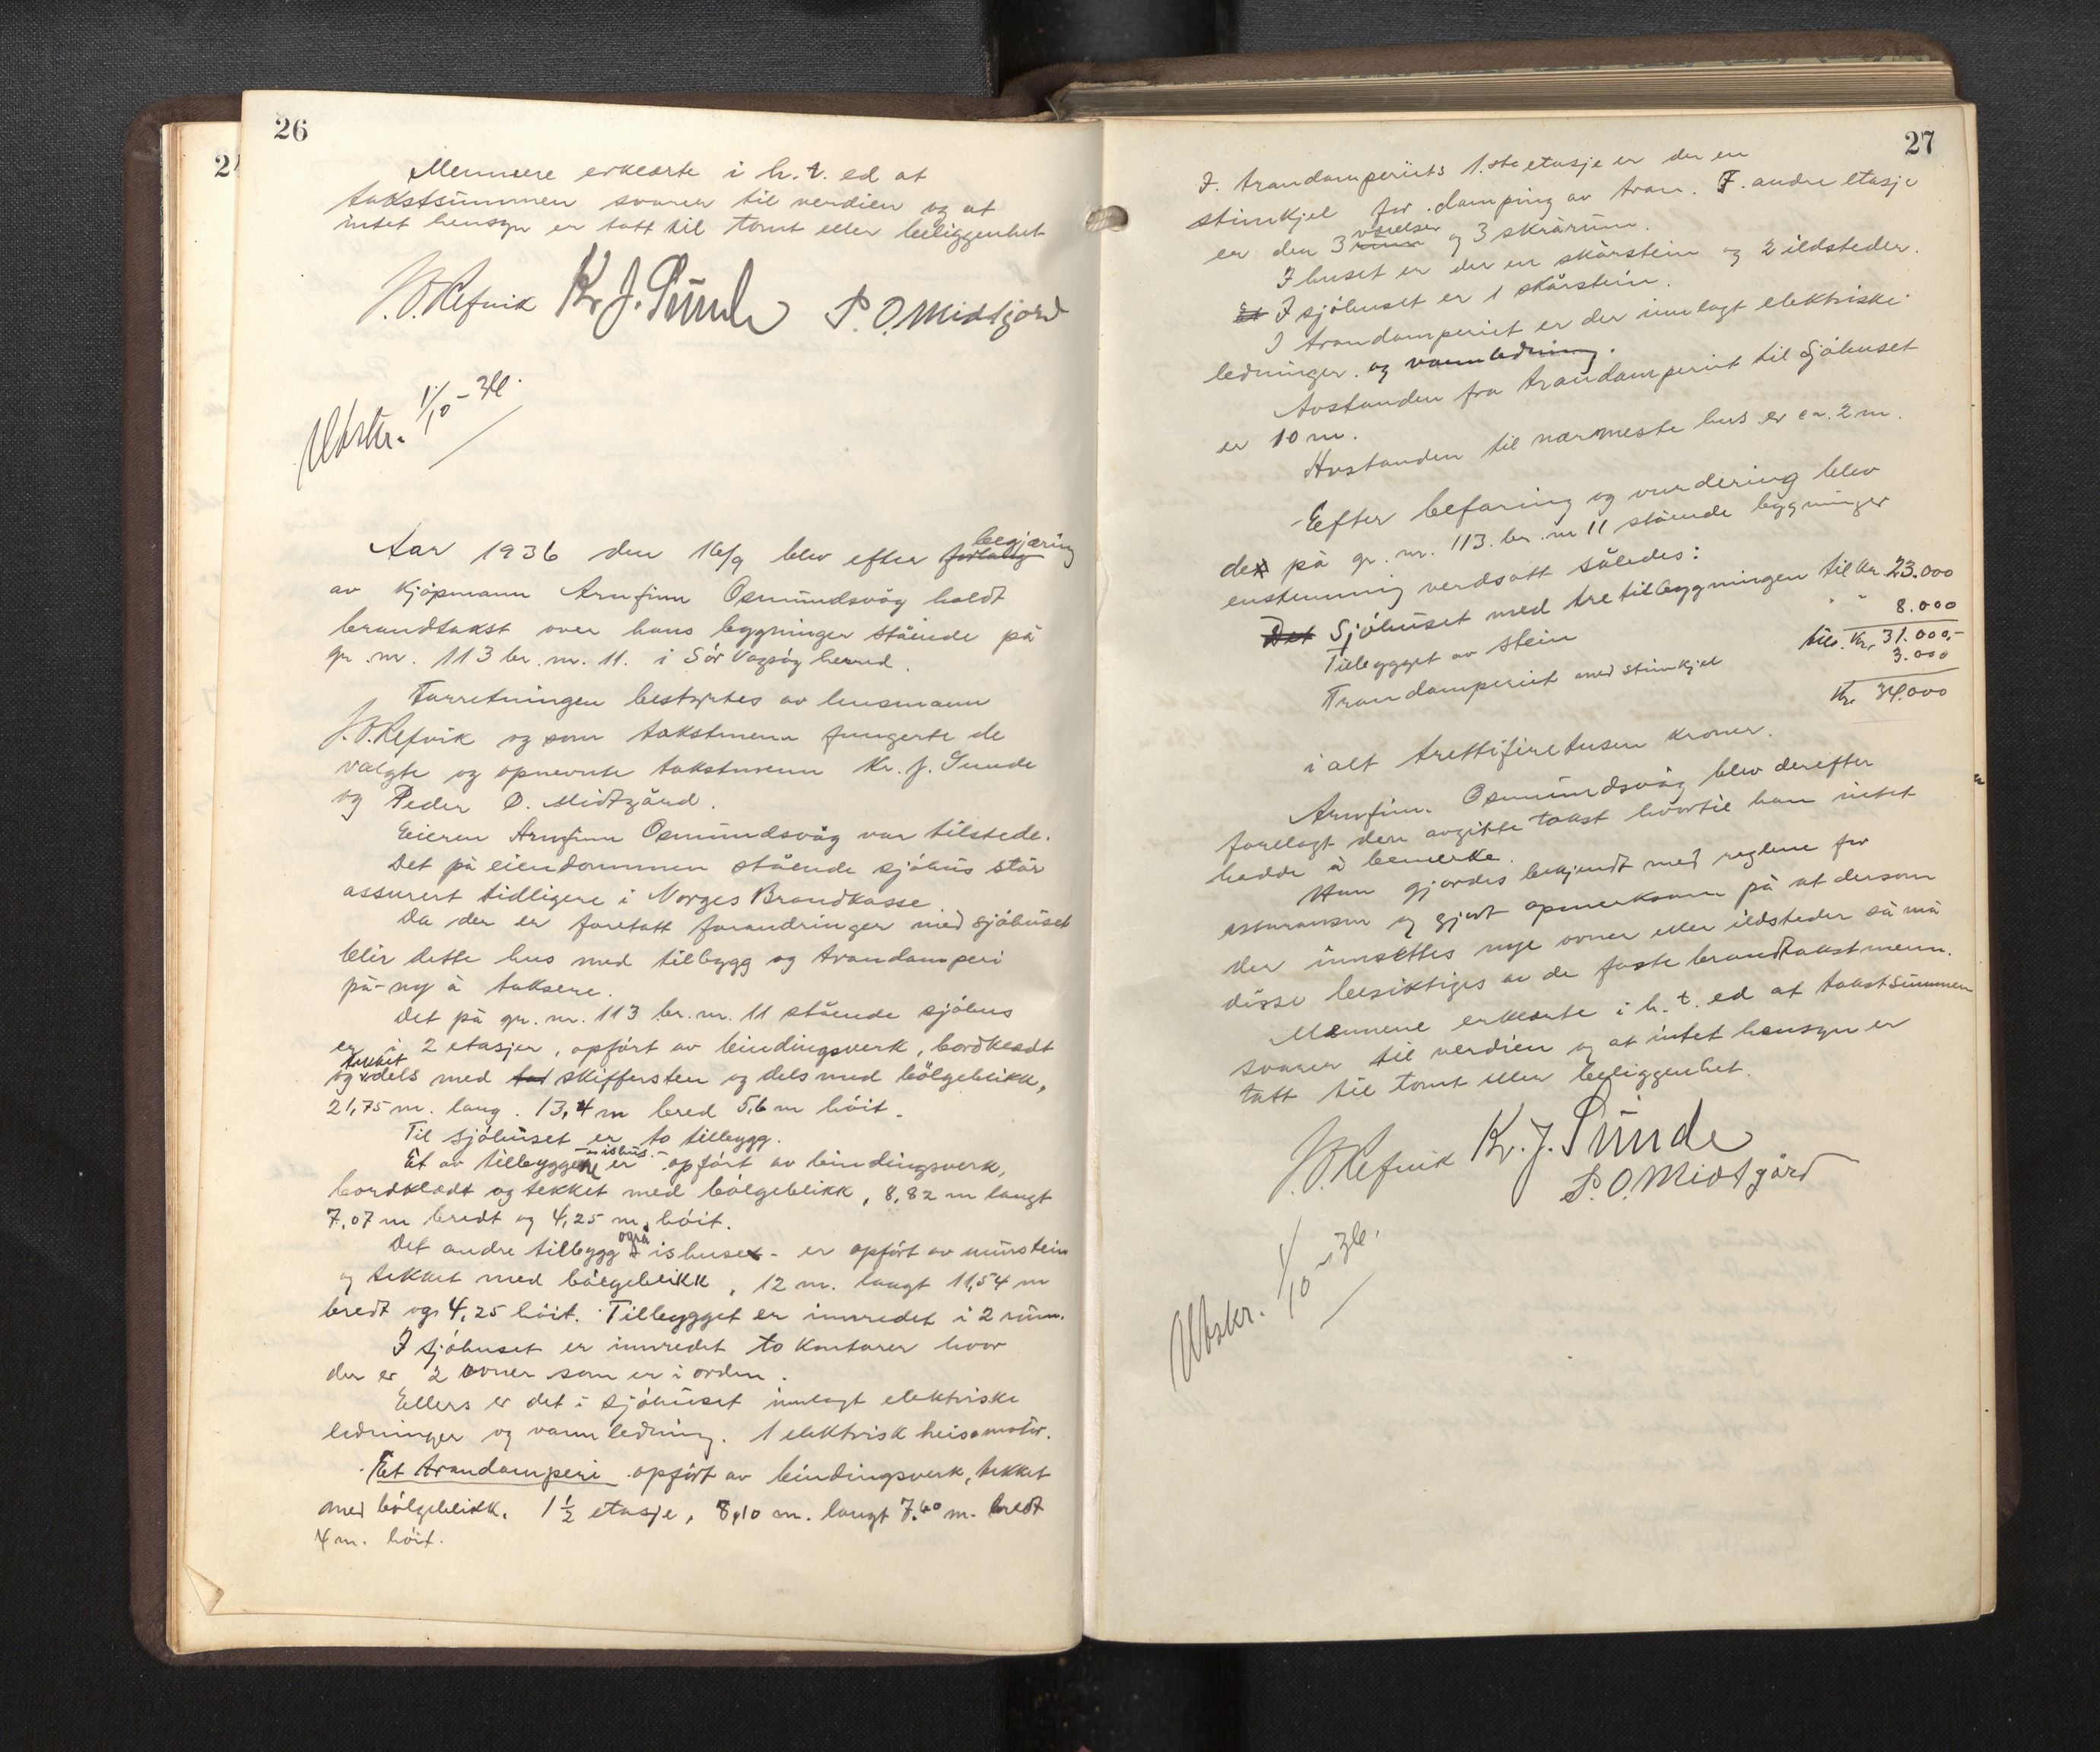 26
Mennene erkearte i h. t. ed at
takstsummen svarer til verdien og at
intet hensyn er tatt til tomt eller beliggenhet
J. O. Refvik Kr. J. Sunde P. O. Midtgård
Utskr. 1/10 - 36.
begjæring
Aar 1936 den 16/9 blev efter forlang
av Kjöpmann Arnfinn Osmundsvåg holdt
brandtakst over hans bygninger stående på
gr. nr. 113 br. nr. 11. i Sör Vågsöy herred.
Forretningen bestyrtes av lensmann
J. O. Refvik og som takstmenn fungerte de
valgte og opnevnte takstmenn Kr. J. Sunde
og Peder O. Midtgård.
Eieren Arnfinn Osmundsvåg var tilstede.
Det på eiendommen stående sjöhus står
assurert tidligere i Norges Brandkasse
Da der er foretatt forandringer med sjöhuset
blir dette hus med tilbygg og trandamperi
på-ny å taksere.
Det på gr. nr. 113 br. nr. 11 stående sjöhus
er i 2 etasjer, opfört av bindingsverk, bordkledt
tekket
og dels med tat skiffersten og dels med bölgeblikk,
21,75 m. lang. 13,4 m bred 5,6 m höit.
Til sjöhuset er to tilbygg.
- ishus. -
Et av tilbyggene er opfört av bindingsverk,
bordkledt og tekket med bölgeblikk, 8,82 m langt
7,07 m bredt og 4,25 m. höit.
også
Det andre tilbygg ishuset - er opfört av murstein
og tekket med bölgeblikk, 12 m. langt 11,54 m
bredt og 4,25 höit. Tilbygget er innredet i 2 rum.
I sjöhuset er innredet to kontorer hvor
der er 2 ovner som er i orden.
Ellers er det i sjöhuset innlagt elektriske
ledninger og vannledning. 1 elektrisk heisemotor.
Et trandamperi opfört av bindingsverk, tekket
med bölgeblikk. 1 1/2 etasje, 8,10 m. langt 7.60 m. bredt
4 m. höit.
27
I. trandamperiets 1.ste etasje er der en
stimkjel for damping av tran. I. andre etasje
værelser
er der 3 rum og 3 skrårum.
I huset er der en skårstein og 2 ildsteder.
Et I sjöhuset er 1 skårstein.
I trandamperiet er der innlagt elektriske
ledninger. og vannledning.
Avstanden fra trandamperiet til Sjöhuset
er 10 m.
Avstanden til nærmeste hus er ca. 2 m.
Efter befaring og vurdering blev
de på gr. nr. 113. br. nr 11 stående bygninger
enstemmig verdsatt således:
Det Sjöhuset med tre tilbygningen til kr. 23.000
Tilbygget av stein " " 8.000
tils. kr. 31.000,-
Trandamperiet med stimkjel 3.000
Kr. 34.000
i alt trettifiretusen kroner.
Arnfinn Osmundsvåg blev derefter
forelagt den avgitte takst hvortil han intet
hadde å bemerke.
Han gjordes bekjendt med reglene for
assuransen og gjort opmerksom på at dersom
der innsettes nye ovner eller ildsteder så må
disse besiktiges av de faste brandtakstmenn.
Mennene erkearte i h. t. ed at takstsummen
svarer til verdien og at intet hensyn er
tatt til tomt eller beliggenhet.
J. O. Refvik Kr. J. Sunde
P. O. Midtgård
Utskr. 1/10 - 36.